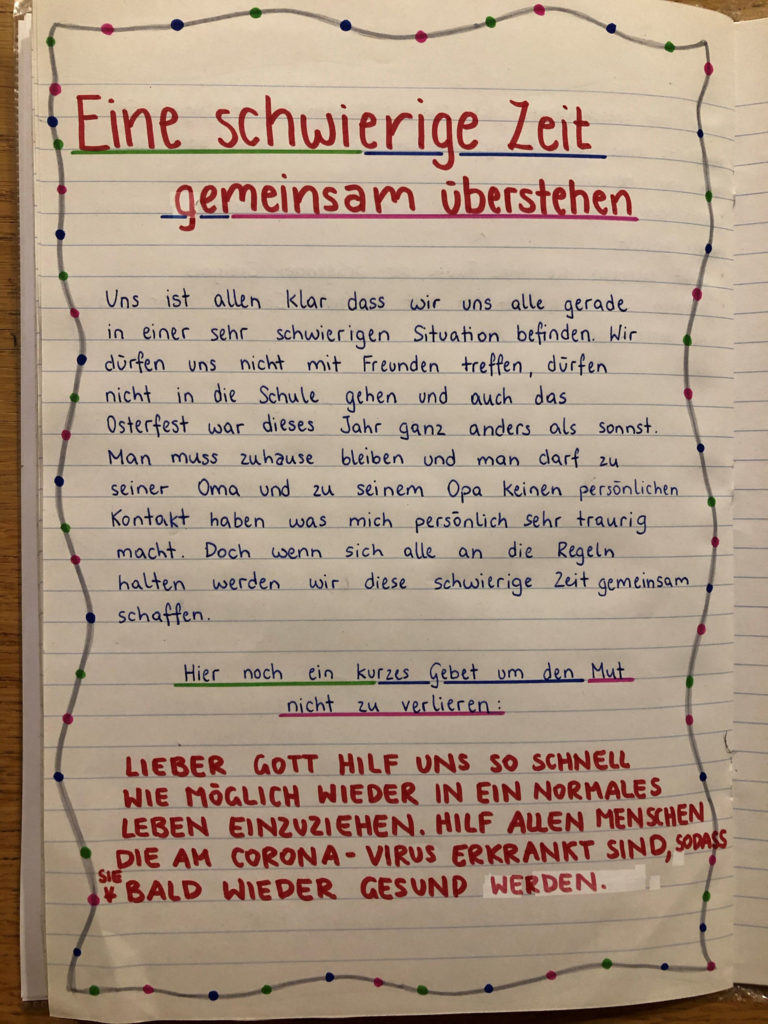 Eine schwierige Zeit
gemeinsam überstehen
Uns ist allen klar dass wir uns alle gerade
in einer sehr schwierigen Situation befinden. Wir
dürfen uns nicht mit Freunden treffen, dürfen
nicht in die Schule gehen und auch das
Osterfest war dieses Jahr ganz anders als sonnst.
Man muss zuhause bleiben und man darf zu
seiner Oma und zu seinem Opa keinen persönlichen
Kontakt haben was mich persönlich sehr traurig
macht. Doch wenn sich alle an die Regeln
halten werden wir diese schwierige Zeit gemeinsam
schaffen.
Hier noch ein kurzes Gebet um den Mut
nicht zu verlieren:
LIEBER GOTT HILF UNS SO SCHNELL
WIE MÖGLICH WIEDER IN EIN NORMALES
LEBEN EINZUZIEHEN. HILF ALLEN MENSCHEN
DIE AM CORONA-VIRUS ERKRANKT SIND, SODASS
SIE BALD WIEDER GESUND WERDEN.